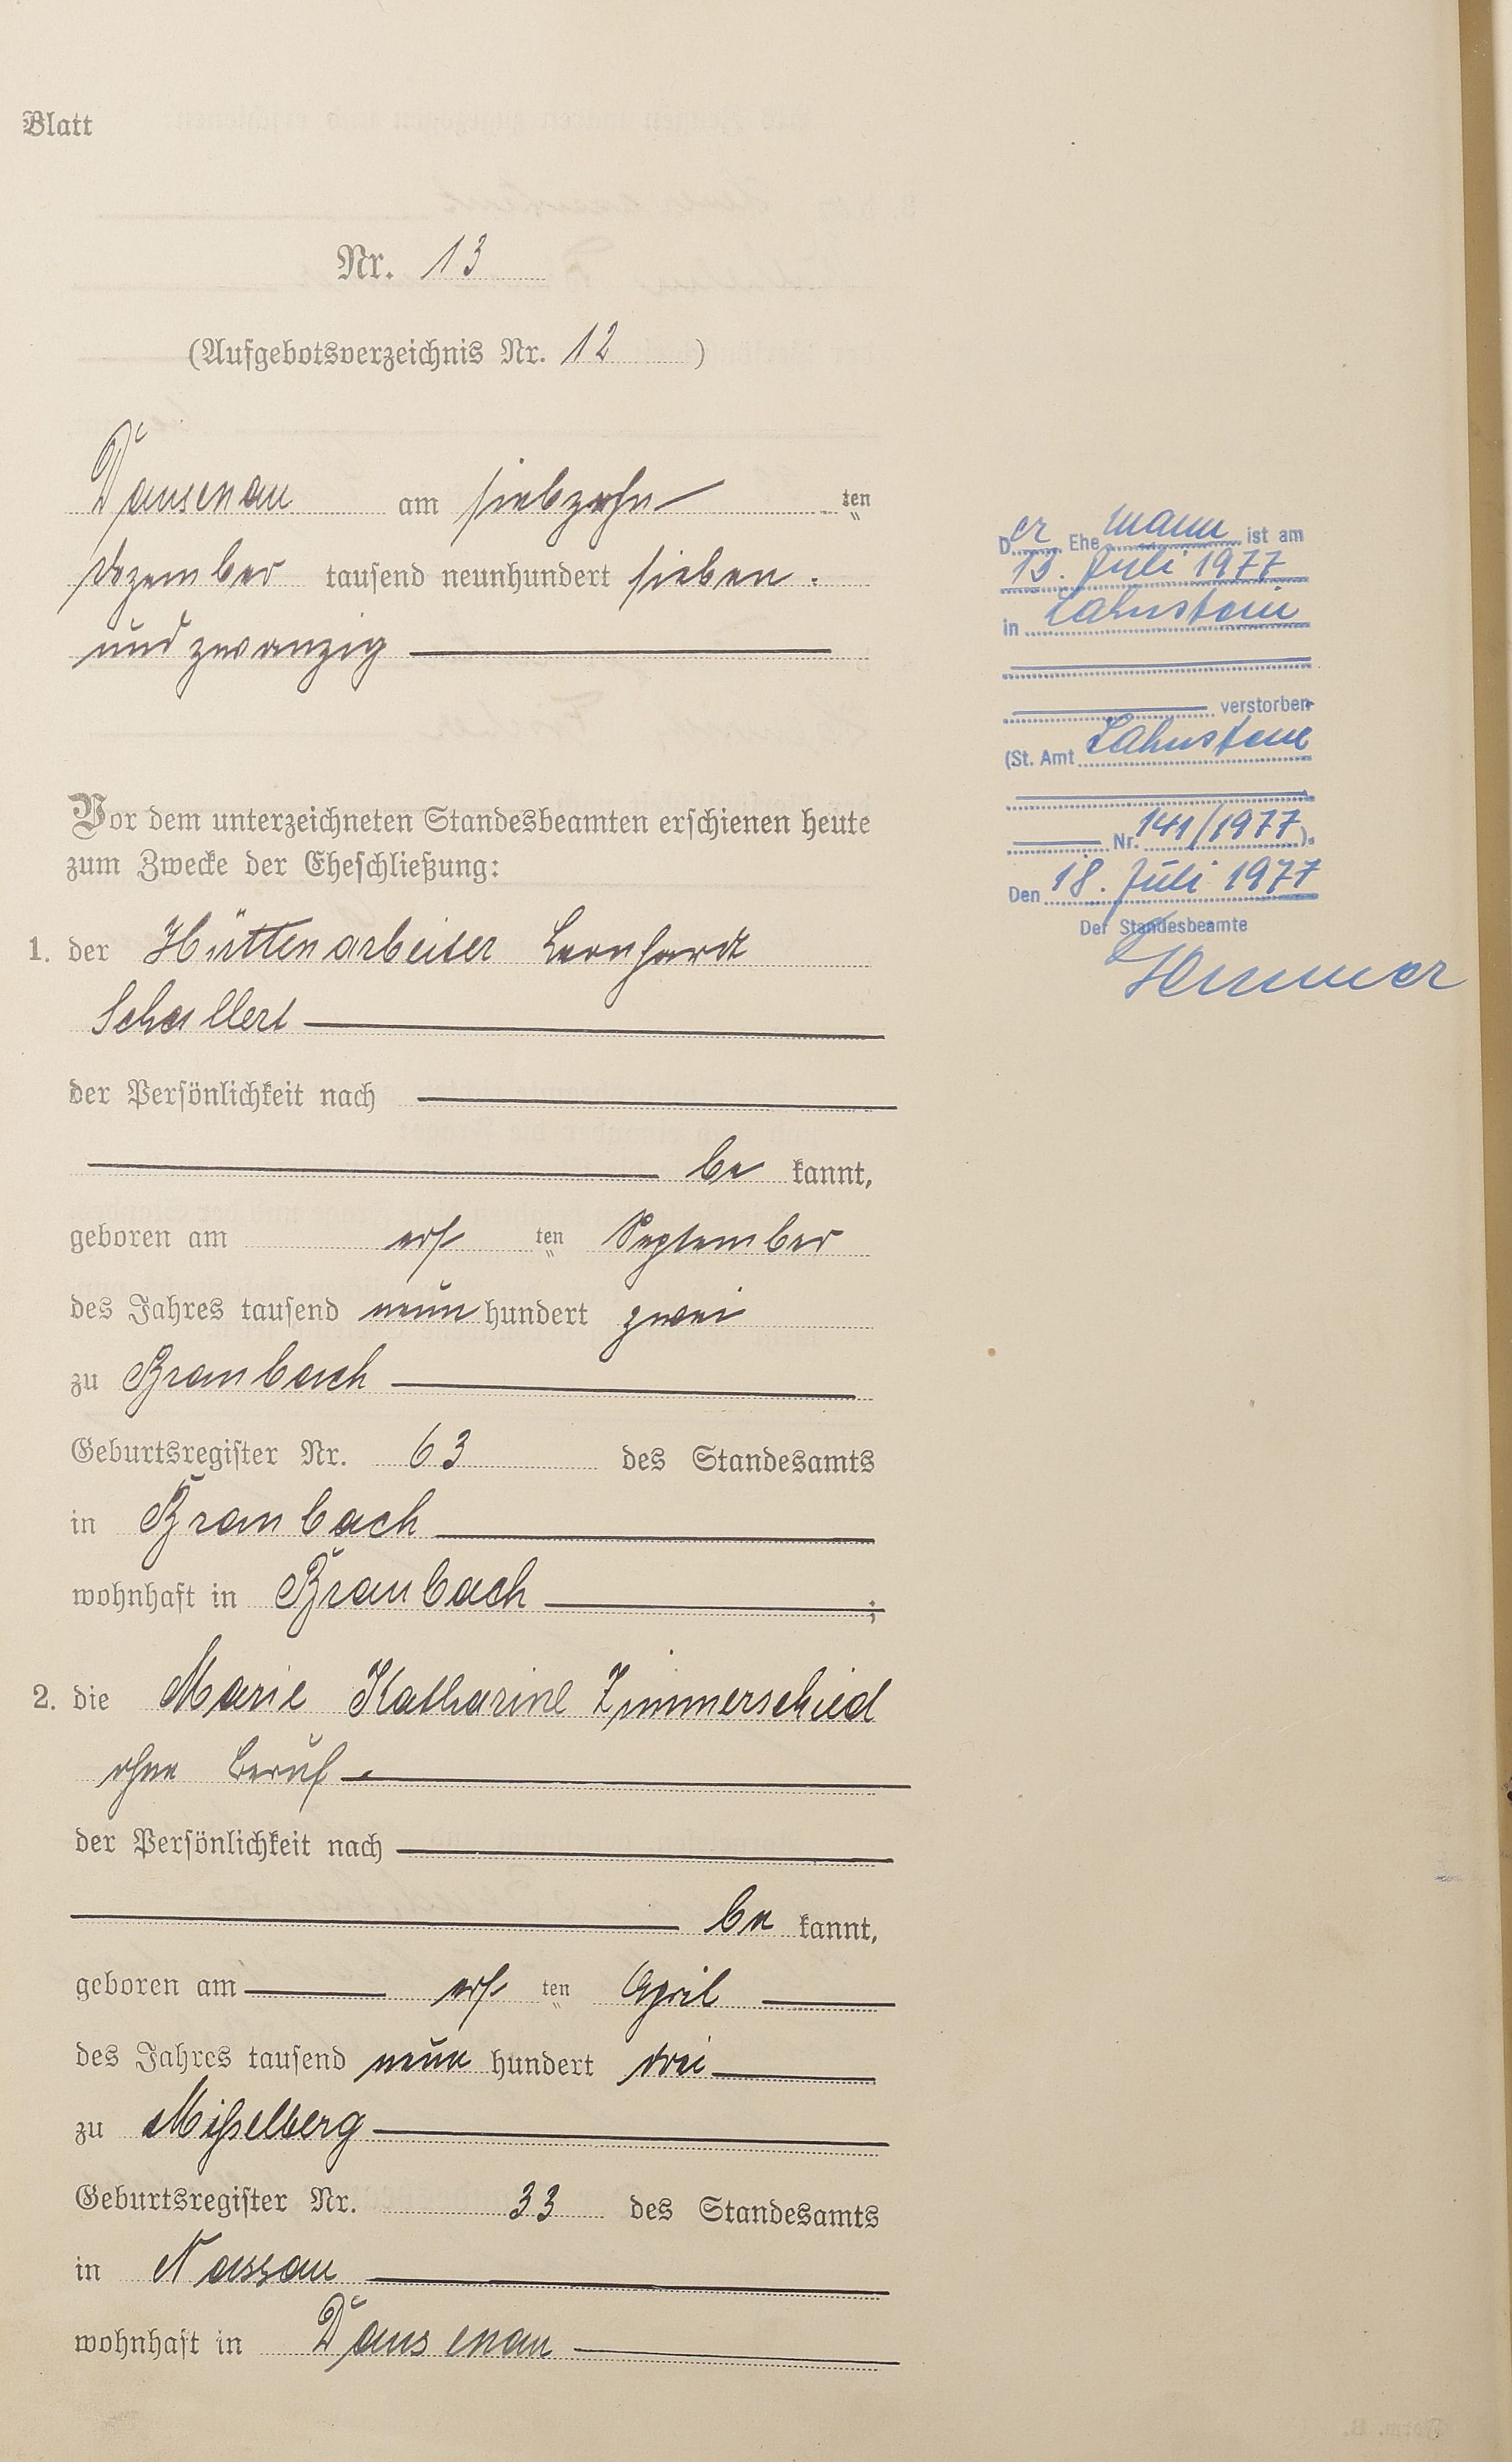 Blatt
Nr. 13
(Aufgebotsverzeichnis Nr. 12)
Dausenau am siebzehnten
Dezember tausend neunhundert sieben.
und zwanzig
Vor dem unterzeichneten Standesbeamten erschienen heute
zum Zwecke der Eheschließung:
1. der Hüttenarbeiter Leonhardt
Schallert
der Persönlichkeit nach
be kannt,
geboren am ersten September
des Jahres tausend neun hundert zwei
zu Braubach
Geburtsregister Nr. 63 des Standesamts
in Braubach
wohnhaft in Braubach;
2. die Marie Katharine Zimmerschied
ohne Beruf.
der Persönlichkeit nach
be kannt,
geboren am ersten April
des Jahres tausend neun hundert drei
zu Misselberg
Geburtsregister Nr. 33 des Standesamts
in Nassau
wohnhaft in Dausenau
Der Ehemann ist am
13. Juli 1977
in Lahnstein
verstorben
(St. Amt Lahnstein
Nr. 141/1977).
Den 18. Juli 1977
Der Standesbeamte